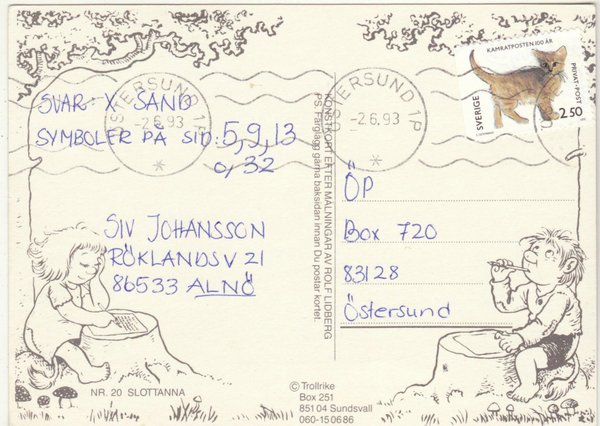 SVAR: X SAND
SYMBOLER PÅ SID: 5, 9, 13
0, 32
SIV JOHANSSON
RÖKLANDSV 21
86533 ALNÖ
NR. 20 SLOTTANNA
ÖSTERSUND 1P
-2.6.93
KONSTKORT EFTER MÅLNINGAR AV ROLF LIDBERG
PS. Färglägg gärna baksidan innan Du postar kortet.
© Trollrike
Box 251
851 04 Sundsvall
060-15 06 86
ÖSTERSUND 1P
-2.6.93
KAMRATPOSTEN 100 ÅR
SVERIGE
PRIVAT-POST
2.50
ÖP
Box 720
83128
Östersund